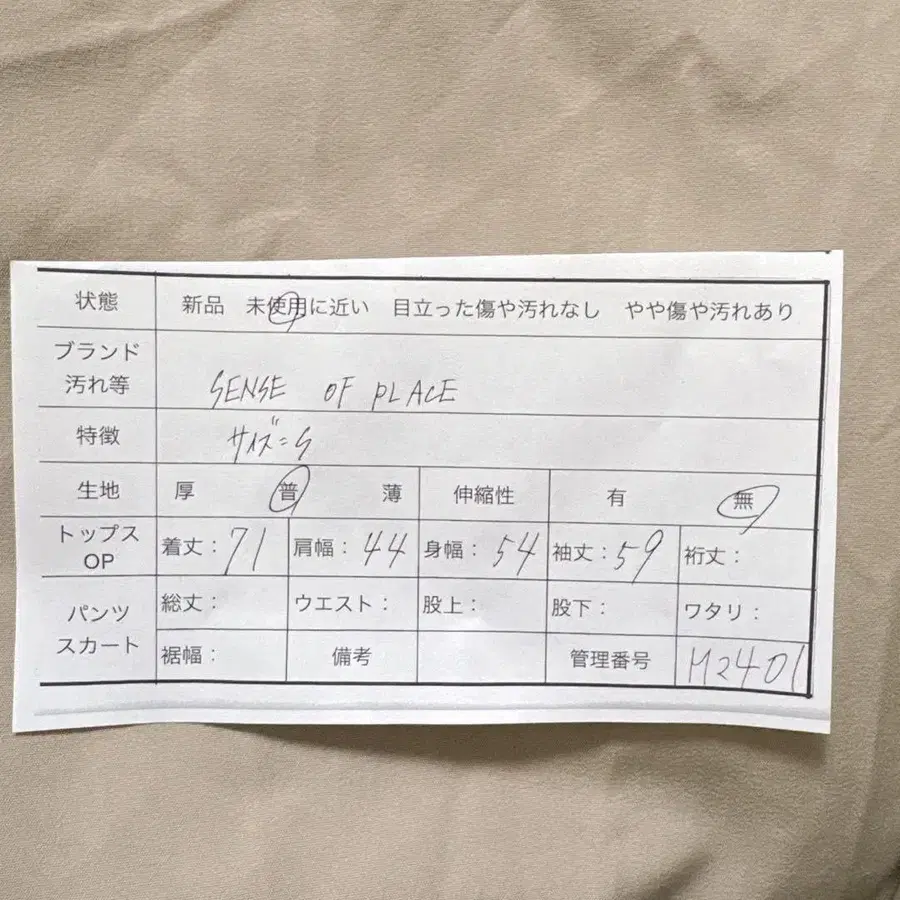 状態 新品 未使用に近い 目立った傷や汚れなし やや傷や汚れあり
ブランド
汚れ等 SENSE OF PLACE
特徴 サイズ=S
生地 厚 普 薄 伸縮性 有 無
トップス
OP 着丈：71 肩幅：44 身幅：54 袖丈：59 裄丈：
パンツ
スカート 総丈： ウエスト： 股上： 股下： ワタリ：
裾幅： 備考 管理番号 M2401